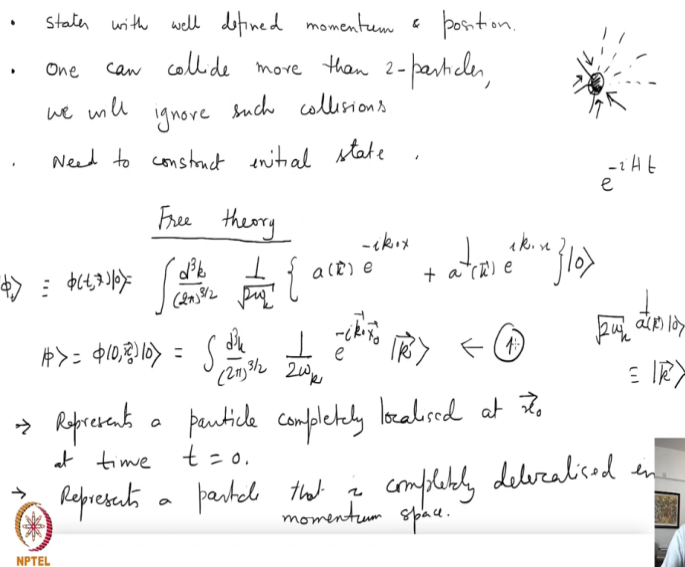 • States with well defined momentum & position.
• One can collide more than 2-particles,
we will ignore such collisions
. Need to construct initial state .
e^{-iHt}
Free theory
|ϕ_t⟩ ≡ ϕ(t,x⃗)|0⟩ = ∫ d³k/(2π)^{3/2} 1/√2ω_k { a(k⃗) e^{-ik·x} + a†(k⃗) e^{ik·x} }|0⟩
|ϕ⟩ = ϕ(0,x⃗₀)|0⟩ = ∫ d³k/(2π)^{3/2} 1/2ω_k e^{-ik⃗·x⃗₀} |k⃗⟩ ← ①
√2ω_k a†(k⃗)|0⟩
≡ |k⃗⟩
→ Represents a particle completely localised at x⃗₀
at time t = 0.
→ Represents a particle that is completely delocalised in
momentum space.
NPTEL